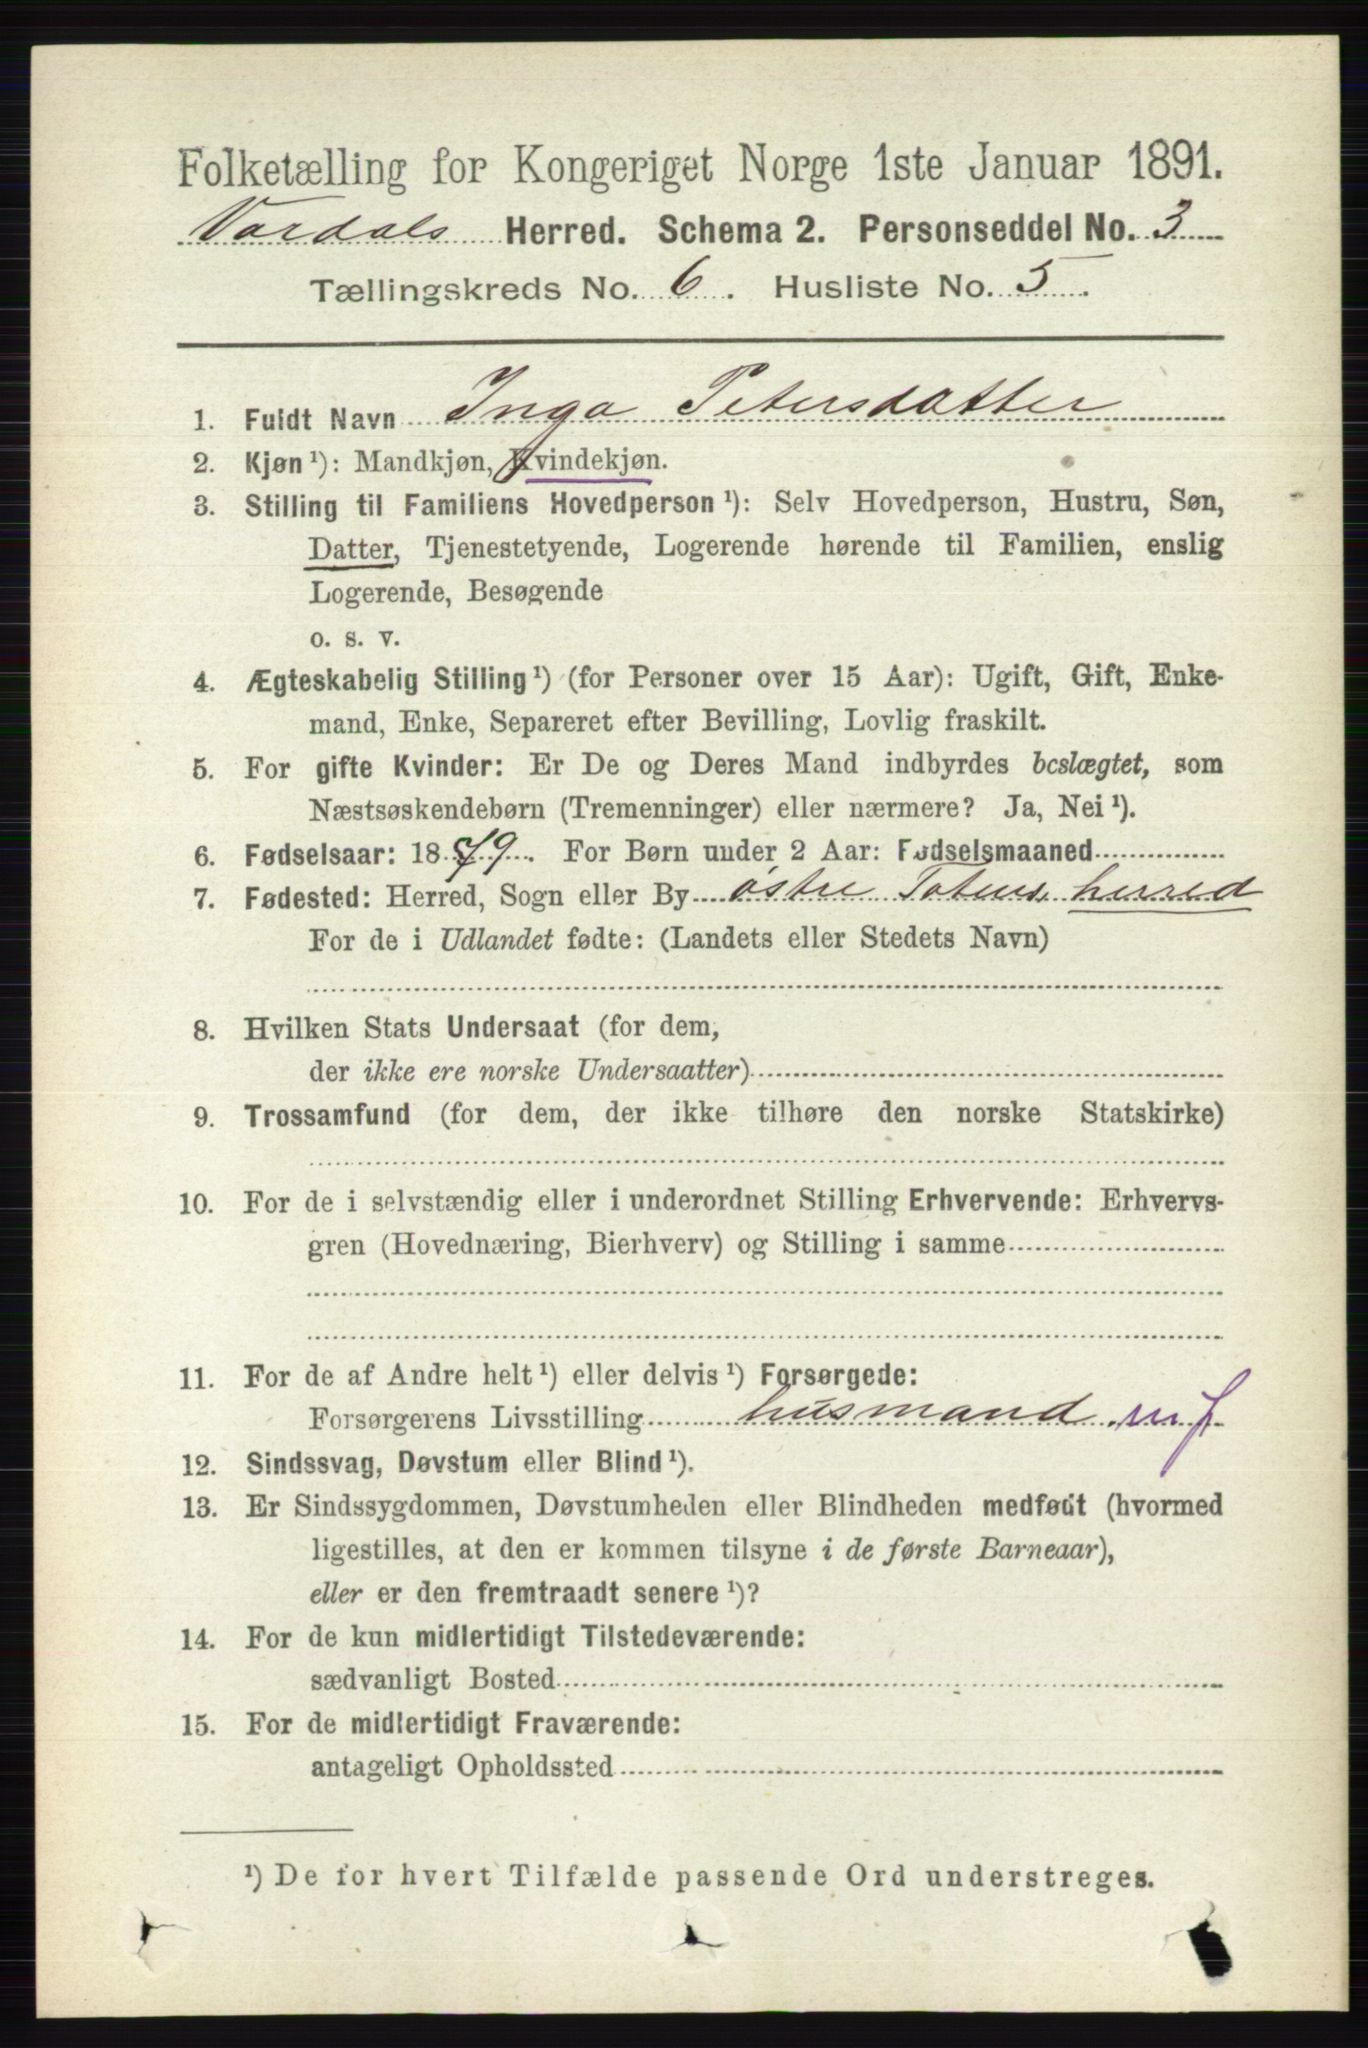 Folketælling for Kongeriget Norge 1ste Januar 1891.
Vardals Herred. Schema 2. Personseddel No. 3
Tællingskreds No. 6. Husliste No. 5.
1. Fuldt Navn Inga Petersdatter
2. Kjøn ¹): Mandkjøn, Kvindekjøn.
3. Stilling til Familiens Hovedperson ¹): Selv Hovedperson, Hustru, Søn,
Datter, Tjenestetyende, Logerende hørende til Familien, enslig
Logerende, Besøgende
o. s. v.
4. Ægteskabelig Stilling ¹) (for Personer over 15 Aar): Ugift, Gift, Enke-
mand, Enke, Separeret efter Bevilling, Lovlig fraskilt.
5. For gifte Kvinder: Er De og Deres Mand indbyrdes beslægtet, som
Næstsøskendebørn (Tremenninger) eller nærmere? Ja, Nei ¹).
6. Fødselsaar: 1879. For Børn under 2 Aar: Fødselsmaaned
7. Fødested: Herred, Sogn eller By östre Totens herred
For de i Udlandet fødte: (Landets eller Stedets Navn)
8. Hvilken Stats Undersaat (for dem,
der ikke ere norske Undersaatter)
9. Trossamfund (for dem, der ikke tilhøre den norske Statskirke)
10. For de i selvstændig eller i underordnet Stilling Erhvervende: Erhvervs-
gren (Hovednæring, Bierhverv) og Stilling i samme
11. For de af Andre helt ¹) eller delvis ¹) Forsørgede:
Forsørgerens Livsstilling husmand m j
12. Sindssvag, Døvstum eller Blind ¹).
13. Er Sindssygdommen, Døvstumheden eller Blindheden medfødt (hvormed
ligestilles, at den er kommen tilsyne i de første Barneaar),
eller er den fremtraadt senere ¹)?
14. For de kun midlertidigt Tilstedeværende:
sædvanligt Bosted
15. For de midlertidigt Fraværende:
antageligt Opholdssted
¹) De for hvert Tilfælde passende Ord understreges.